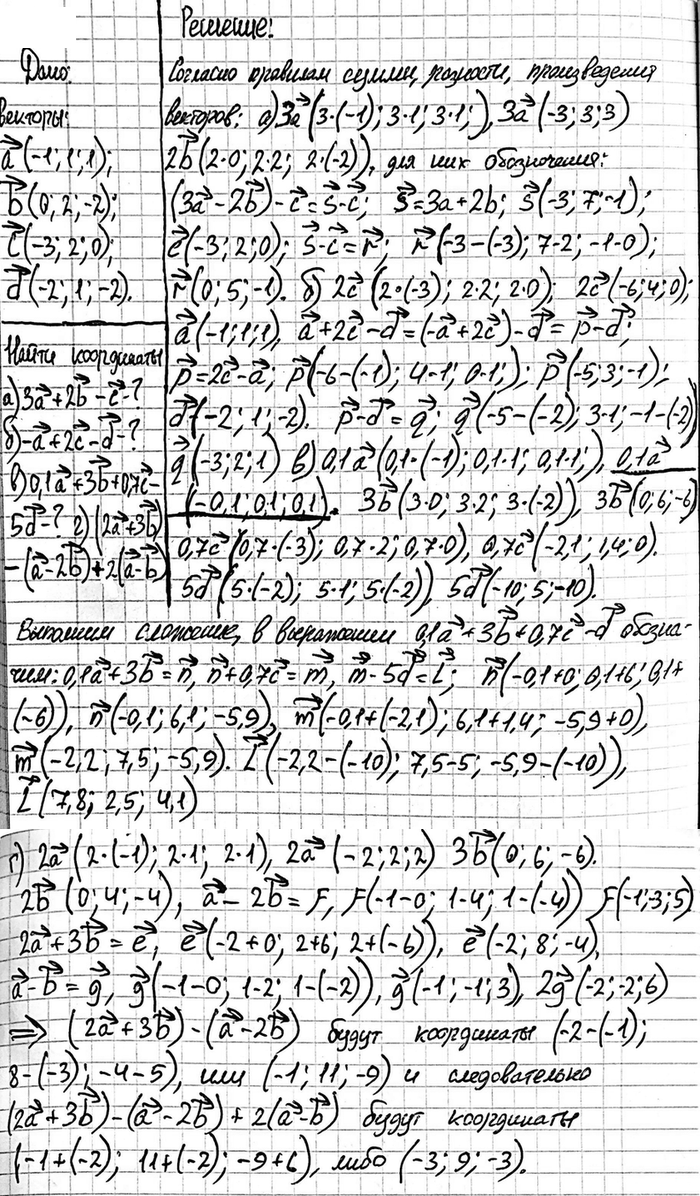 Решение:
Дано:
векторы:
a⃗(-1; 1; 1);
b⃗(0; 2; -2);
c⃗(-3; 2; 0);
d⃗(-2; 1; -2).
Найти координаты
а) 3a⃗+2b⃗-c⃗-?
б) -a⃗+2c⃗-d⃗-?
в) 0,1a⃗+3b⃗+0,7c⃗-
5d⃗-? г) (2a⃗+3b⃗)
-(a⃗-2b⃗)+2(a⃗-b⃗)
Согласно правилам суммы, разности, произведения
векторов: а) 3a⃗(3·(-1); 3·1; 3·1;), 3a⃗(-3; 3; 3)
2b⃗(2·0; 2·2; 2·(-2)), для них обозначения:
(3a⃗-2b⃗)-c⃗=s⃗-c⃗; s⃗=3a+2b; s⃗(-3; 7; -1);
c⃗(-3; 2; 0); s⃗-c⃗=r⃗; r⃗(-3-(-3); 7-2; -1-0);
r⃗(0; 5; -1). б) 2c⃗(2·(-3); 2·2; 2·0); 2c⃗(-6; 4; 0);
a⃗(-1; 1; 1), a⃗+2c⃗-d⃗=(-a⃗+2c⃗)-d⃗=p⃗-d⃗;
p⃗=2c⃗-a⃗; p⃗(-6-(-1); 4-1; 0-1;); p⃗(-5; 3; -1);
d⃗(-2; 1; -2). p⃗-d⃗=q⃗; q⃗(-5-(-2); 3-1; -1-(-2)
q⃗(-3; 2; 1) в) 0,1a⃗(0,1·(-1); 0,1·1; 0,1·1;), 0,1a⃗
(-0,1; 0,1; 0,1). 3b⃗(3·0; 3·2; 3·(-2)), 3b⃗(0; 6; -6)
0,7c⃗(0,7·(-3); 0,7·2; 0,7·0), 0,7c⃗(-2,1; 1,4; 0).
5d⃗(5·(-2); 5·1; 5·(-2)), 5d⃗(-10; 5; -10).
Выполним сложение, в выражении 0,1a⃗+3b⃗+0,7c⃗-d⃗ обозна-
чим: 0,1a⃗+3b⃗=n⃗, n⃗+0,7c⃗=m⃗, m⃗-5d⃗=L⃗; n⃗(-0,1+0; 0,1+6; 0,1+
(-6)), n⃗(-0,1; 6,1; -5,9), m⃗(-0,1+(-2,1); 6,1+1,4; -5,9+0),
m⃗(-2,2; 7,5; -5,9). L⃗(-2,2-(-10); 7,5-5; -5,9-(-10)),
L⃗(7,8; 2,5; 4,1)
г) 2a⃗(2·(-1); 2·1; 2·1), 2a⃗(-2; 2; 2) 3b⃗(0; 6; -6).
2b⃗(0; 4; -4), a⃗-2b⃗=F, F(-1-0; 1-4; 1-(-4)) F(-1; -3; 5)
2a⃗+3b⃗=e⃗, e⃗(-2+0; 2+6; 2+(-6)), e⃗(-2; 8; -4),
a⃗-b⃗=g⃗, g⃗(-1-0; 1-2; 1-(-2)), g⃗(-1; -1; 3), 2g⃗(-2; -2; 6)
⇒ (2a⃗+3b⃗)-(a⃗-2b⃗) будут координаты (-2-(-1);
8-(-3); -4-5), или (-1; 11; -9) и следовательно
(2a⃗+3b⃗)-(a⃗-2b⃗)+2(a⃗-b⃗) будут координаты
(-1+(-2); 11+(-2); -9+6), либо (-3; 9; -3).